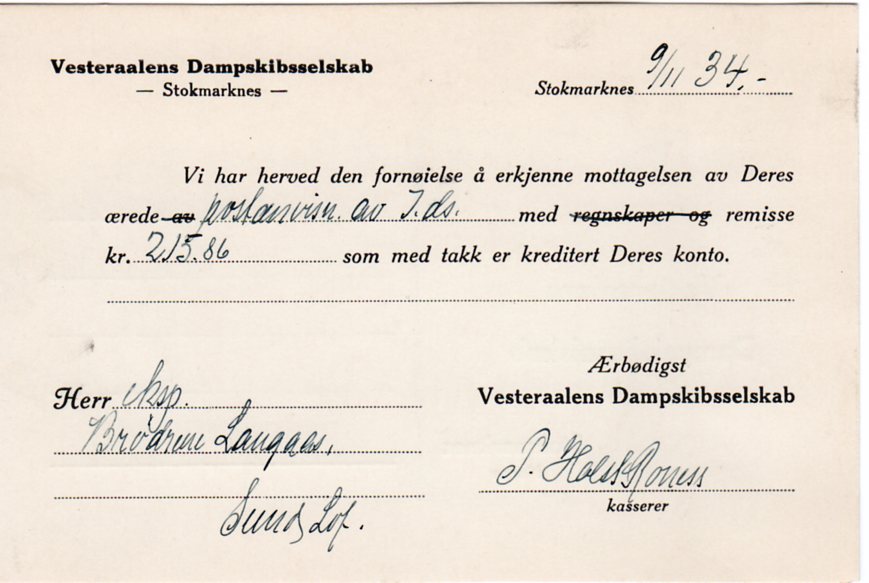 Vesteraalens Dampskibsselskab
— Stokmarknes —
Stokmarknes 9/11 34.-
Vi har herved den fornøielse å erkjenne mottagelsen av Deres
ærede av postanvisn. av 7. ds. med regnskaper og remisse
kr. 215.86 som med takk er kreditert Deres konto.
Ærbødigst
Vesteraalens Dampskibsselskab
Herr eksp.
Brödrene Langaas,
Sund, Lof.
P. Holst
kasserer